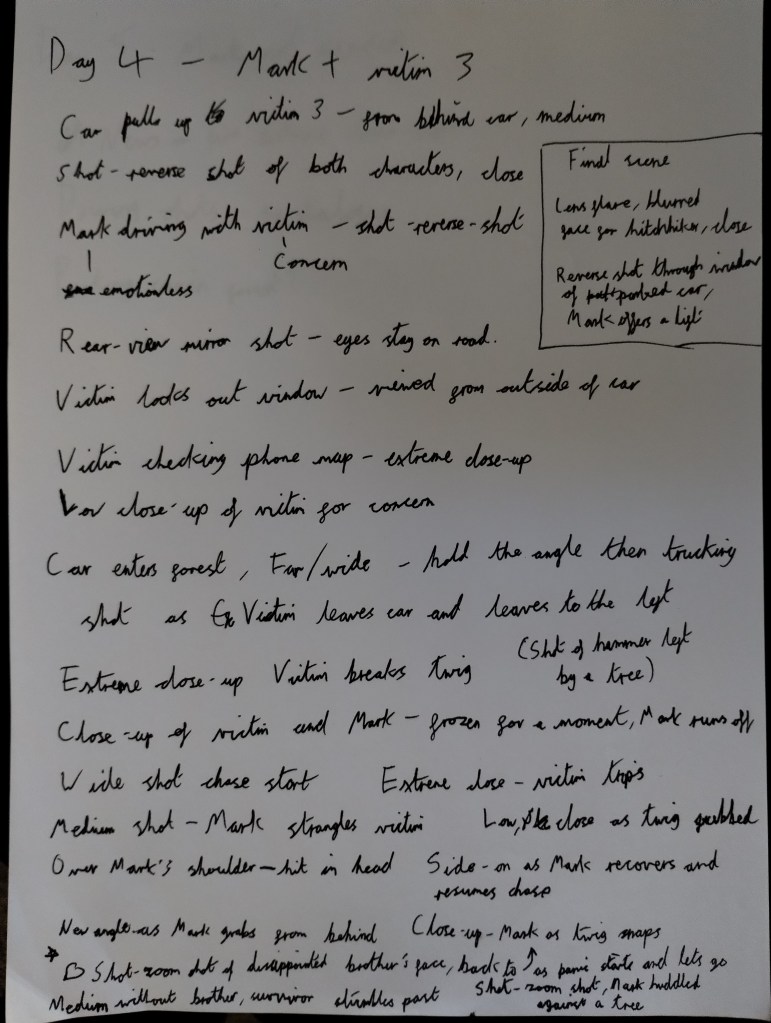 Day 4 - Mark + victim 3
Car pulls up to victim 3 - from behind car, medium
Shot-reverse shot of both characters, close
Mark driving with victim - shot-reverse-shot
emotionless
Concern
Final scene
Lens flare, blurred
face for hitchhiker, close
Reverse shot through window
of parked car,
Mark offers a lift
Rear-view mirror shot - eyes stay on road.
Victim looks out window - viewed from outside of car
Victim checking phone map - extreme close-up
Low close-up of victim for concern
Car enters forest, Far/wide - hold the angle then trucking
shot as Victim leaves car and leaves to the left
Extreme close-up Victim breaks twig
(Shot of hammer left
by a tree)
Close-up of victim and Mark - frozen for a moment, Mark runs off
Wide shot chase start Extreme close - victim trips
Medium shot - Mark strangles victim Low, close as twig grabbed
Over Mark's shoulder - hit in head Side-on as Mark recovers and
resumes chase
New angle as Mark grabs from behind Close-up - Mark as twig snaps
Shot-zoom shot of disappointed brother's face, back to ↑ as panic starts and lets go
Medium without brother, survivor stumbles past Shot-zoom shot, Mark huddled
against a tree